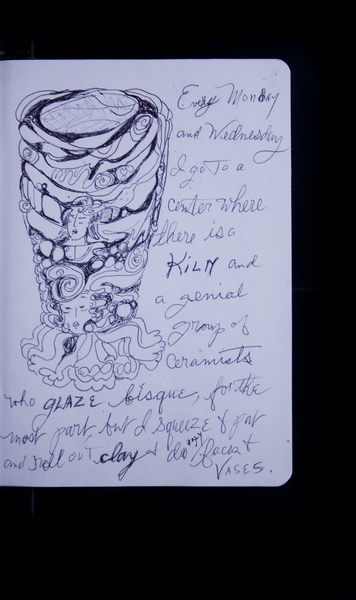 Every Monday
and Wednesday
I go to a
center where
there is a
KILN and
a genial
group of
ceramists
who GLAZE bisque, for the
most part but I squeeze & pat
and roll out clay & do my faces &
VASES.